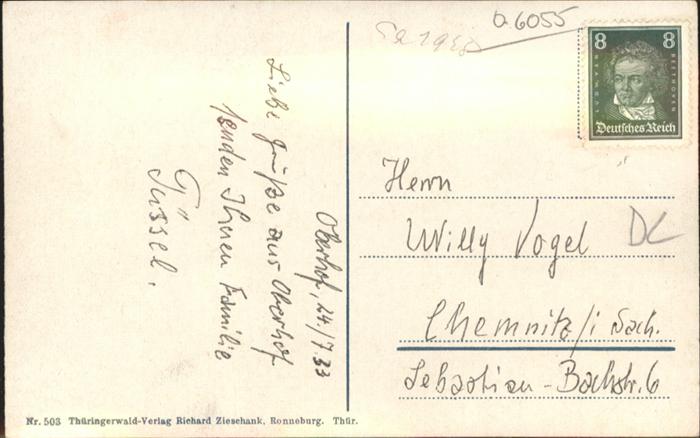 Ca 1930
a 6055
8 8
LUDWIG VAN BEETHOVEN
Deutsches Reich
Oberhof, 24./7.33
Liebe Grüße aus Oberhof
senden Ihnen Familie
Tüssel.
Herrn
Willy Vogel
DL
Chemnitz/i Sach.
Sebastian-Bachstr. 6
Nr. 503 Thüringerwald-Verlag Richard Zieschank, Ronneburg. Thür.